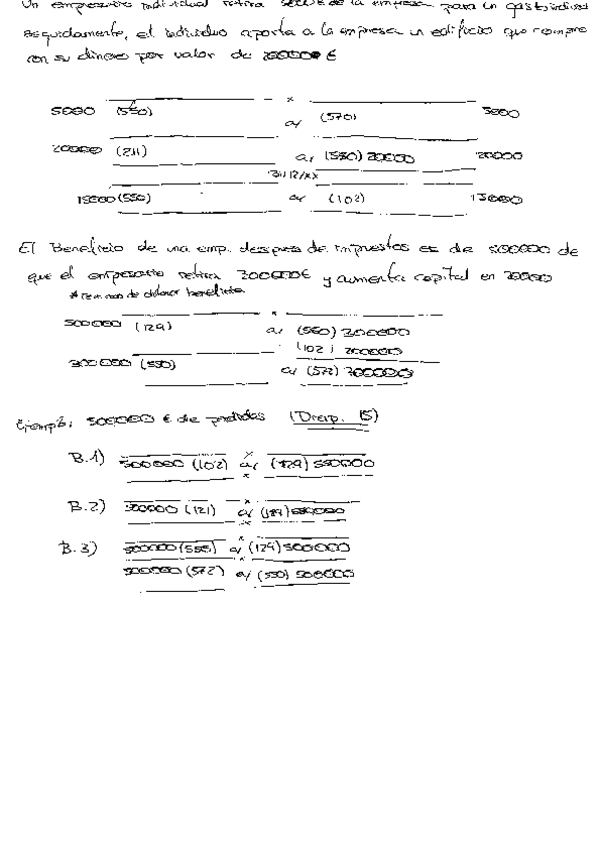 Un empresario individual retira 5000€ de la empresa para un gasto
seguidamente, el individuo aporta a la empresa un edificio que compro
con su dinero por valor de 20000 €
x
5000 (550) a/ (570) 5000
20000 (211) a/ (550) 20000 20000
31/12/XX
15000 (550) a/ (102) 15000
El Beneficio de una emp. despues de impuestos es de 500000 de
que el empresario retira 300000€ y aumenta capital en
beneficio
x
500000 (129) a/ (550) 300000
(102) 200000
300000 (550) a/ (572) 300000
Ejemplo: 500000 € de perdidas (Diesp. 15)
x
B.1) 500000 (102) a/ (129) 500000
x
x
B.2) 500000 (121) a/ (129) 500000
x
x
B.3) 500000 (550) a/ (129) 500000
x
500000 (572) a/ (550) 500000